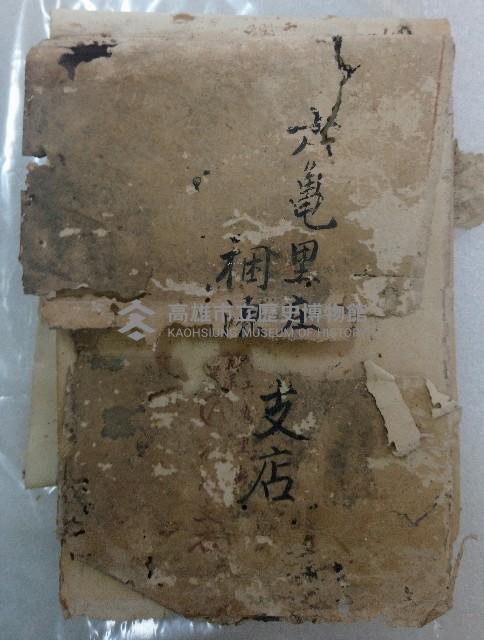 六龜里庄
捆源
支店
高雄市立歷史博物館
KAOHSIUNG MUSEUM OF HISTORY